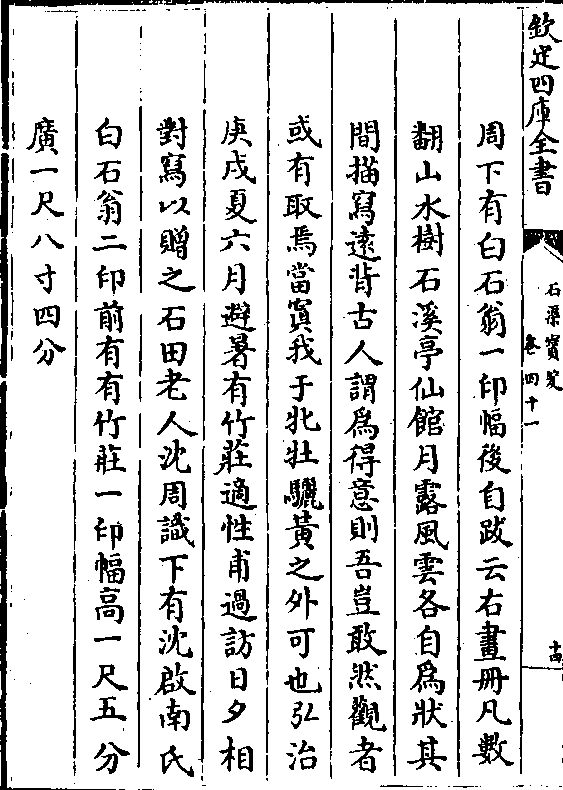 欽定四庫全書
石渠寶笈
卷四十一
十四
周下有白石翁一印幅後自跋云右畫册凡數
翻山水樹石溪亭仙館月露風雲各自為狀其
間描寫遠背古人謂為得意則吾豈敢然觀者
或有取焉當寘我于牝牡驪黃之外可也弘治
庚戌夏六月避暑有竹莊適性甫過訪日夕相
對寫以贈之石田老人沈周識下有沈啟南氏
白石翁二印前有有竹莊一印幅高一尺五分
廣一尺八寸四分